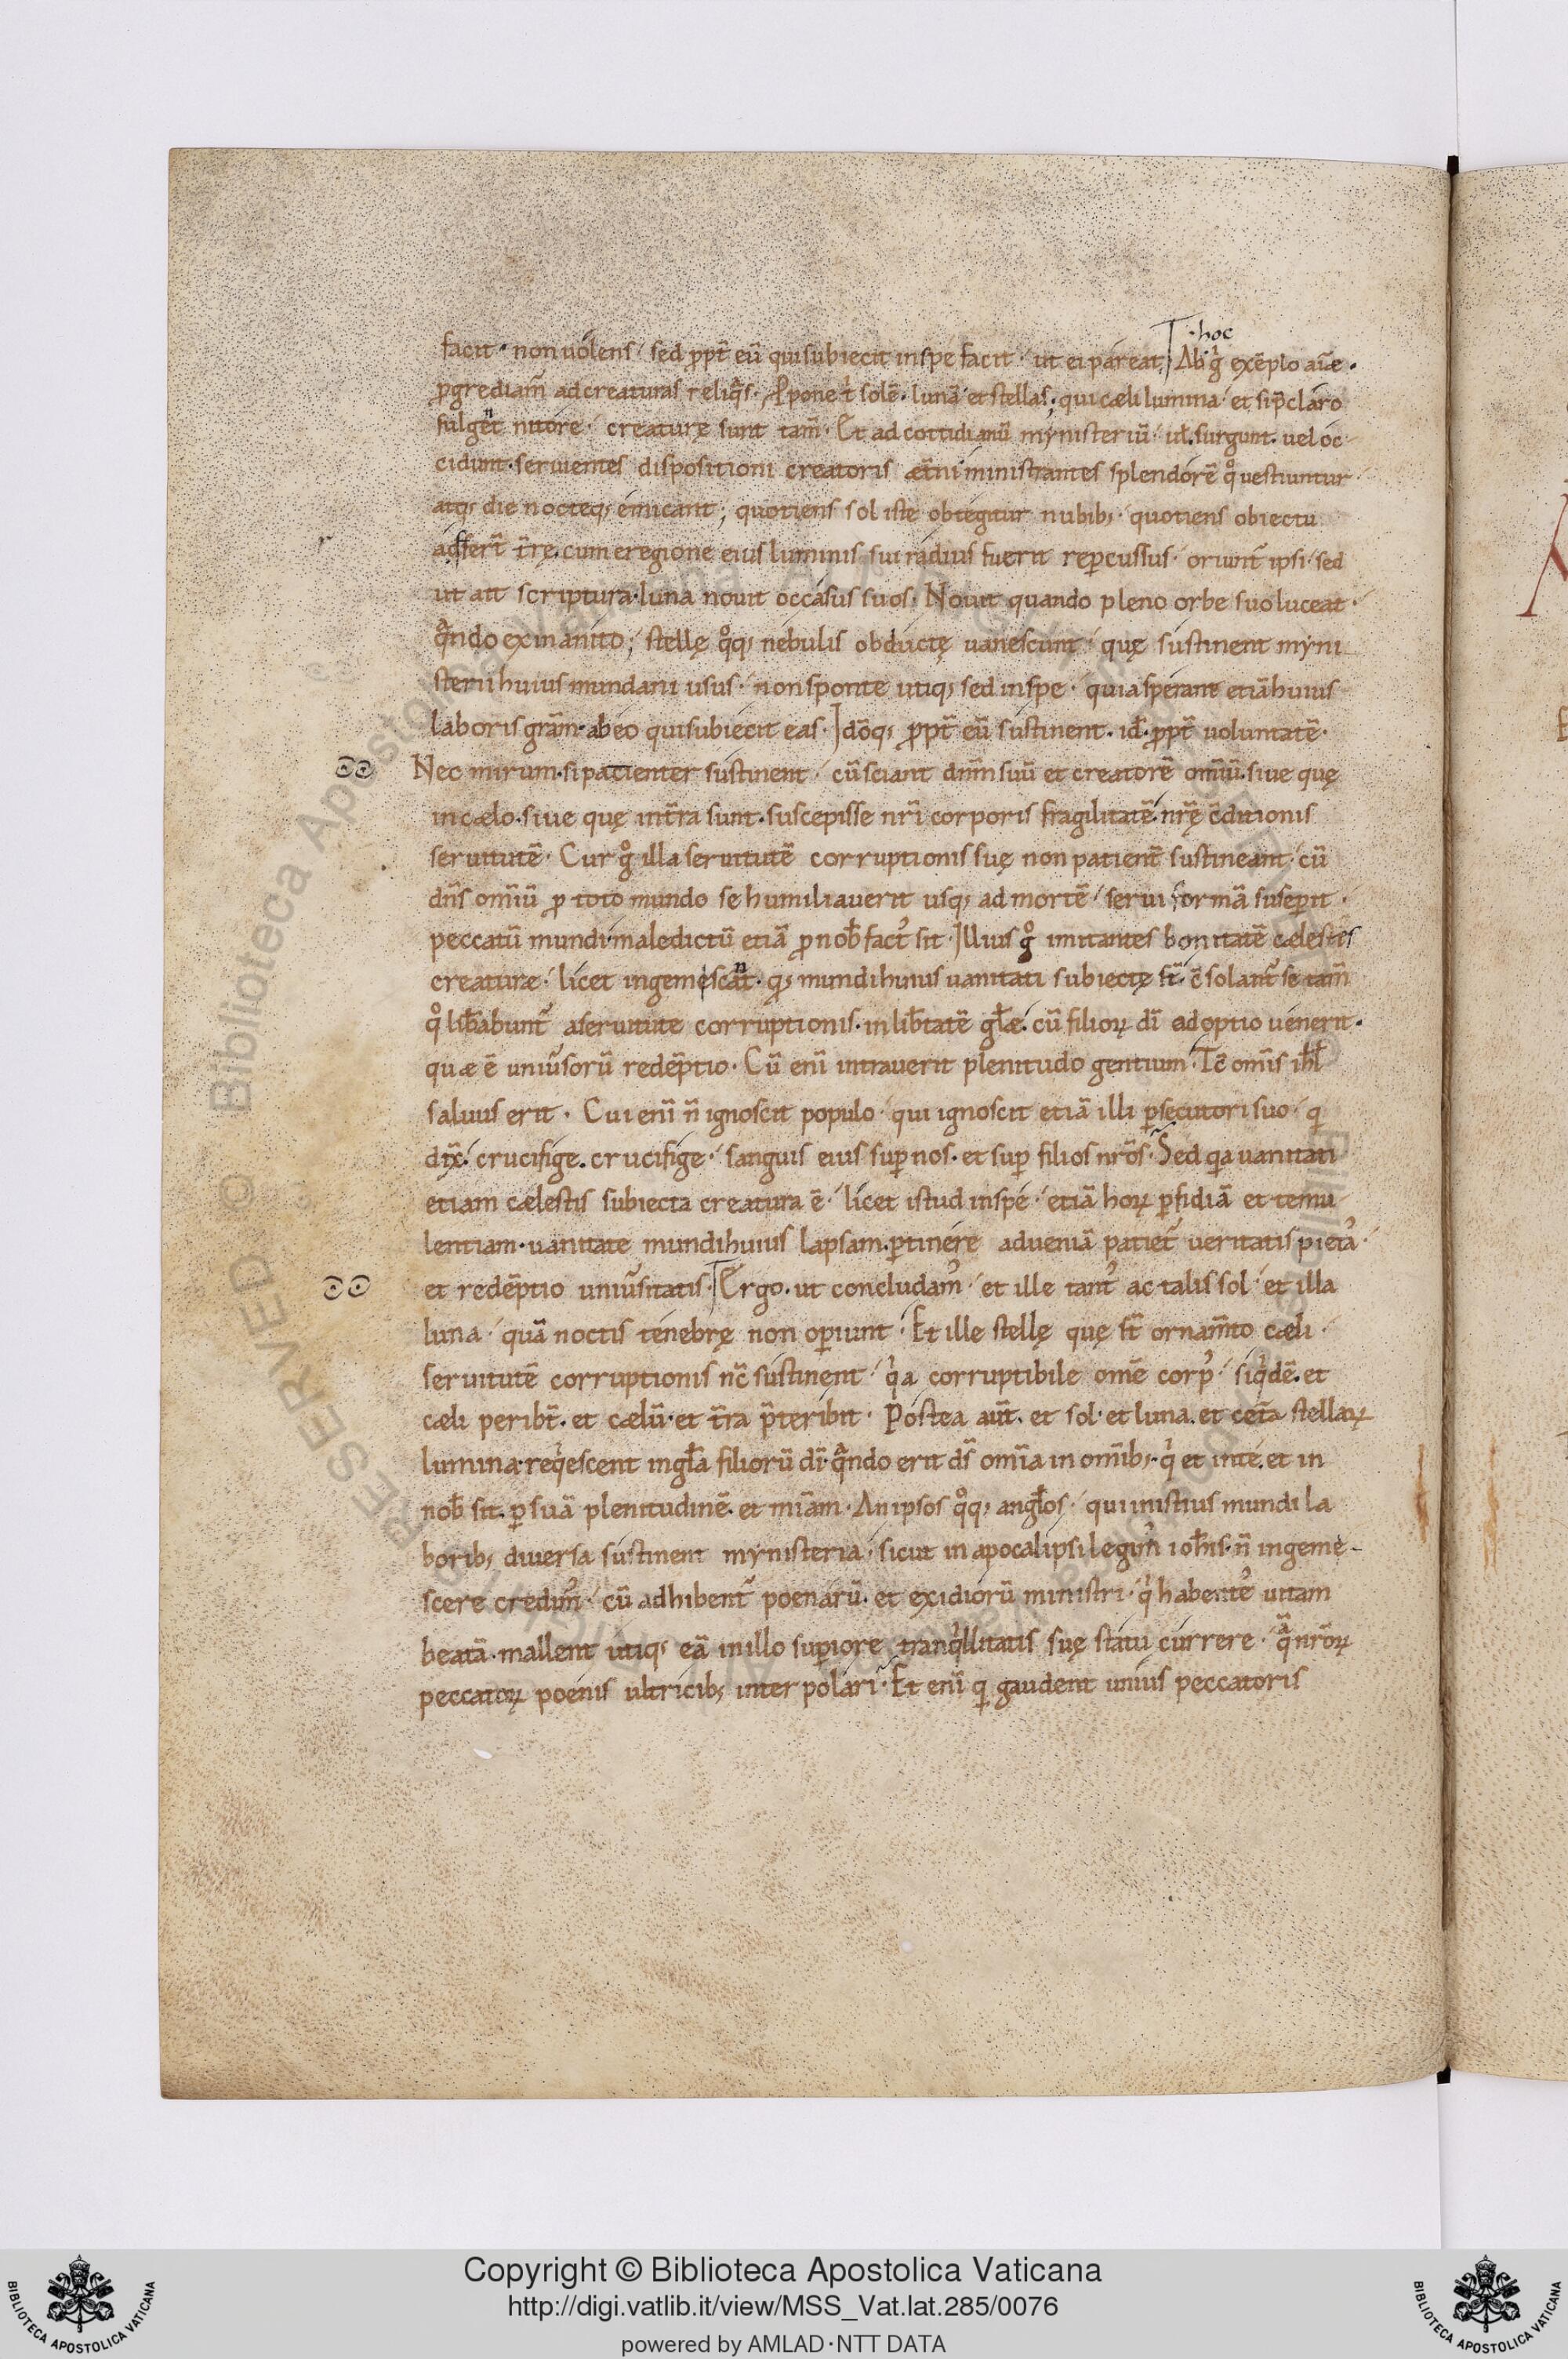 ·hoc
facit · non uolens · sed ꝓpt̃ eũ qui subiecit in spe facit · ut ei pareat. Ab g̊ exẽplo aĩæ ·
ꝓgrediam̃ ad creaturas reliq̃s · Ꝓpone t̉ solẽ · lunã et stellas · qui cæli lumina · et si p̃claro
fulgent nitore · creaturę sunt tam̃ · Et ad cottidianũ mynisteriũ · ul̃ surgunt · uel oc
cidunt · seruientes dispositioni creatoris æt̃ni ministrantes splendorẽ q̊ uestiuntur
atq; die nocteq; emicant; quotiens sol iste obtegitur nubib; · quotiens obiectu
adfert̃ t̃rę cum e regione eius luminis sui radius fuerit reꝑcussus · oriunt̃ ipsi · sed
ut ait scriptura · luna nouit occasus suos · Nouit quando pleno orbe suo luceat ·
q̃ndo exinanito; stellę q̊q; nebulis obductę uanescunt · quę sustinent myni
sterii huius mundani usus · non sponte utiq; sed in spe · quia sperant etiã huius
laboris gr̃am · ab eo qui subiecit eas · Idõq; ꝓpt̃ eũ sustinent · id ̃ ꝓpt̃ uoluntatẽ ·
Nec mirum · si patienter sustinent · cũ sciant dñm suũ et creatorẽ om̃iũ · siue quę
in cælo · siue quę in t̃ra sunt · suscepisse nr̃i corporis fragilitatẽ · nr̃ę c̃ditionis
seruitutẽ · Cur g̊ illa seruitutẽ corruptionis suę non patient̃ sustineant · cũ
dñs om̃iũ ꝓ toto mundo se humiliauerit usq; ad mortẽ · serui formã susceꝑit ·
peccatũ mundi · maledictũ etiã ꝓ nob̃ fact᾿ sit · Illius g̊ imitantes bonitatẽ cælestes
creaturæ · licet ingemescant · q; mundi huius uanitati subiectę st̃ · c̃solant̃ se tam̃
q̊ lib̃abunt̃ a seruitute corruptionis · in lib̃tatẽ gl̃æ · cũ filioꝝ dĩ adoptio uenerit ·
quæ ẽ uniũsorũ redẽptio · Cũ enĩ intrauerit plenitudo gentium · Tc̃ om̃is isr̃l
saluus erit · Cui enĩ ñ ignoscit populo · qui ignoscit etiã illi ꝑsecutori suo · q
dix̃ · crucifige · crucifige · sanguis eius suꝑ nos · et suꝑ filios nr̃os · Sed qa uanitati
etiam cælestis subiecta creatura ẽ · licet istud in spe · etiã hoꝝ ꝑfidiã et temu
lentiam · uanitate mundi huius lapsam · ꝑtinere ad ueniã patiet̃ ueritatis pieta᾿ ·
et redẽptio uniũsitatis · Ergo · ut concludam᾿ · et ille tant᾿ ac talis sol · et illa
luna · quã noctis tenebrę non oꝑiunt · Et ille stellę quę st̃ ornam̃to cæli ·
seruitutẽ corruptionis nc̃ sustinent · q̉a corruptibile om̃e corp᾿ · siq̉dẽ · et
cæli peribt̃ · et cælũ · et t̃ra p̃teribit · Postea aut̃ · et sol · et luna · et cet̃a stellaꝝ
lumina · req̉escent in gl̃a filiorũ dĩ · q̃ndo erit ds̃ om̃ia in om̃ib; · q̉ et in te · et in
nob̃ sit · ꝑ suã plenitudinẽ · et miãm · An ipsos q̊q; angl̃os · qui in istius mundi la
borib; diuersa sustinent mynisteria · sicut in apocalipsi legim᾿ ioh̃is · ñ ingeme-
scere credim᾿ · cũ adhibent̃ poenarũ · et exidiorũ ministri · q̉ habente᾿ uitam
beatã · mallent utiq; eã in illo suꝑiore tranq̉llitatis suę statu currere · q̃ nr̃oꝝ
peccatoꝝ poenis ultricib; inter polari · Et enĩ q gaudent unius peccatoris
Copyright © Biblioteca Apostolica Vaticana
http://digi.vatlib.it/view/MSS_Vat.lat.285/0076
powered by AMLAD·NTT DATA